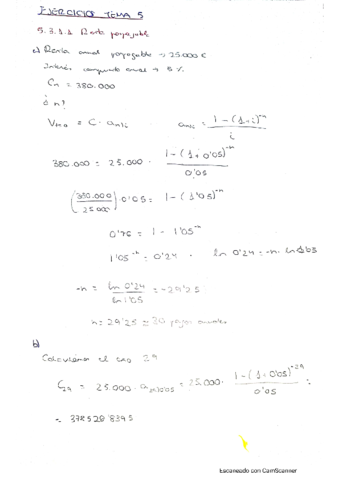 EJERCICIOS TEMA 5
5.3.1.1 Renta pospagable
a) Renta anual pospagable → 25.000 €
Interés compuesto anual → 5 %
Cn = 380.000
¿ n?
V₀ = C · an¬i    an¬i = 1 - (1+i)^-n / i
380.000 = 25.000 · 1 - (1+0'05)^-n / 0'05
(380.000 / 25.000) 0'05 = 1 - (1'05)^-n
0'76 = 1 - 1'05^-n
1'05^-n = 0'24 . ln 0'24 = -n · ln 1'05
-n = ln 0'24 / ln 1'05 = -29'25
n = 29'25 ≃ 30 pagos anuales
b)
Calculamos el 29
C29 = 25.000 · a29¬0'05 = 25.000 · 1 - (1+0'05)^-29 / 0'05 =
= 378528'8395
Escaneado con CamScanner